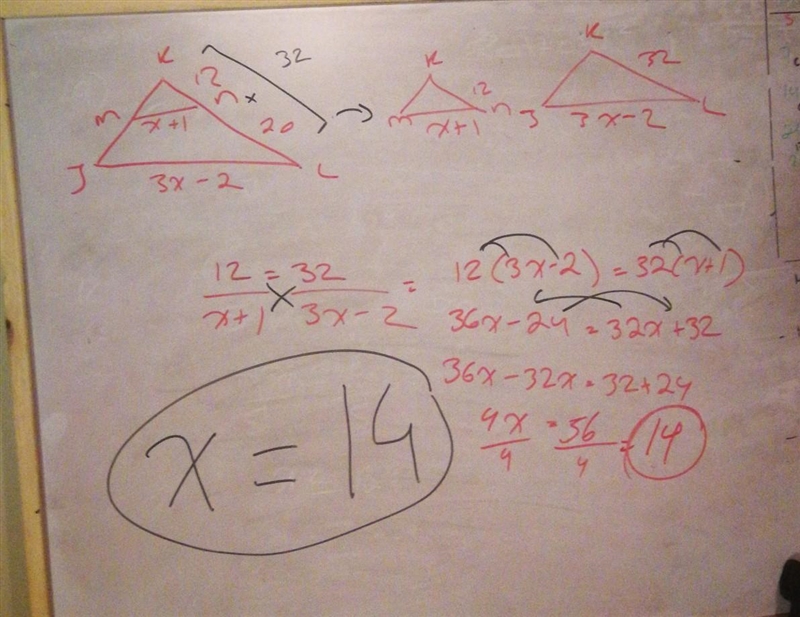 K 12 n x 32
m x+1 20
J 3x-2 L
K 12
m x+1 n
K 32
J 3x-2 L
12/x+1 = 32/3x-2 =
12(3x-2) = 32(x+1)
36x-24 = 32x+32
36x-32x = 32+24
4x/4 = 56/4 = 14
x = 14